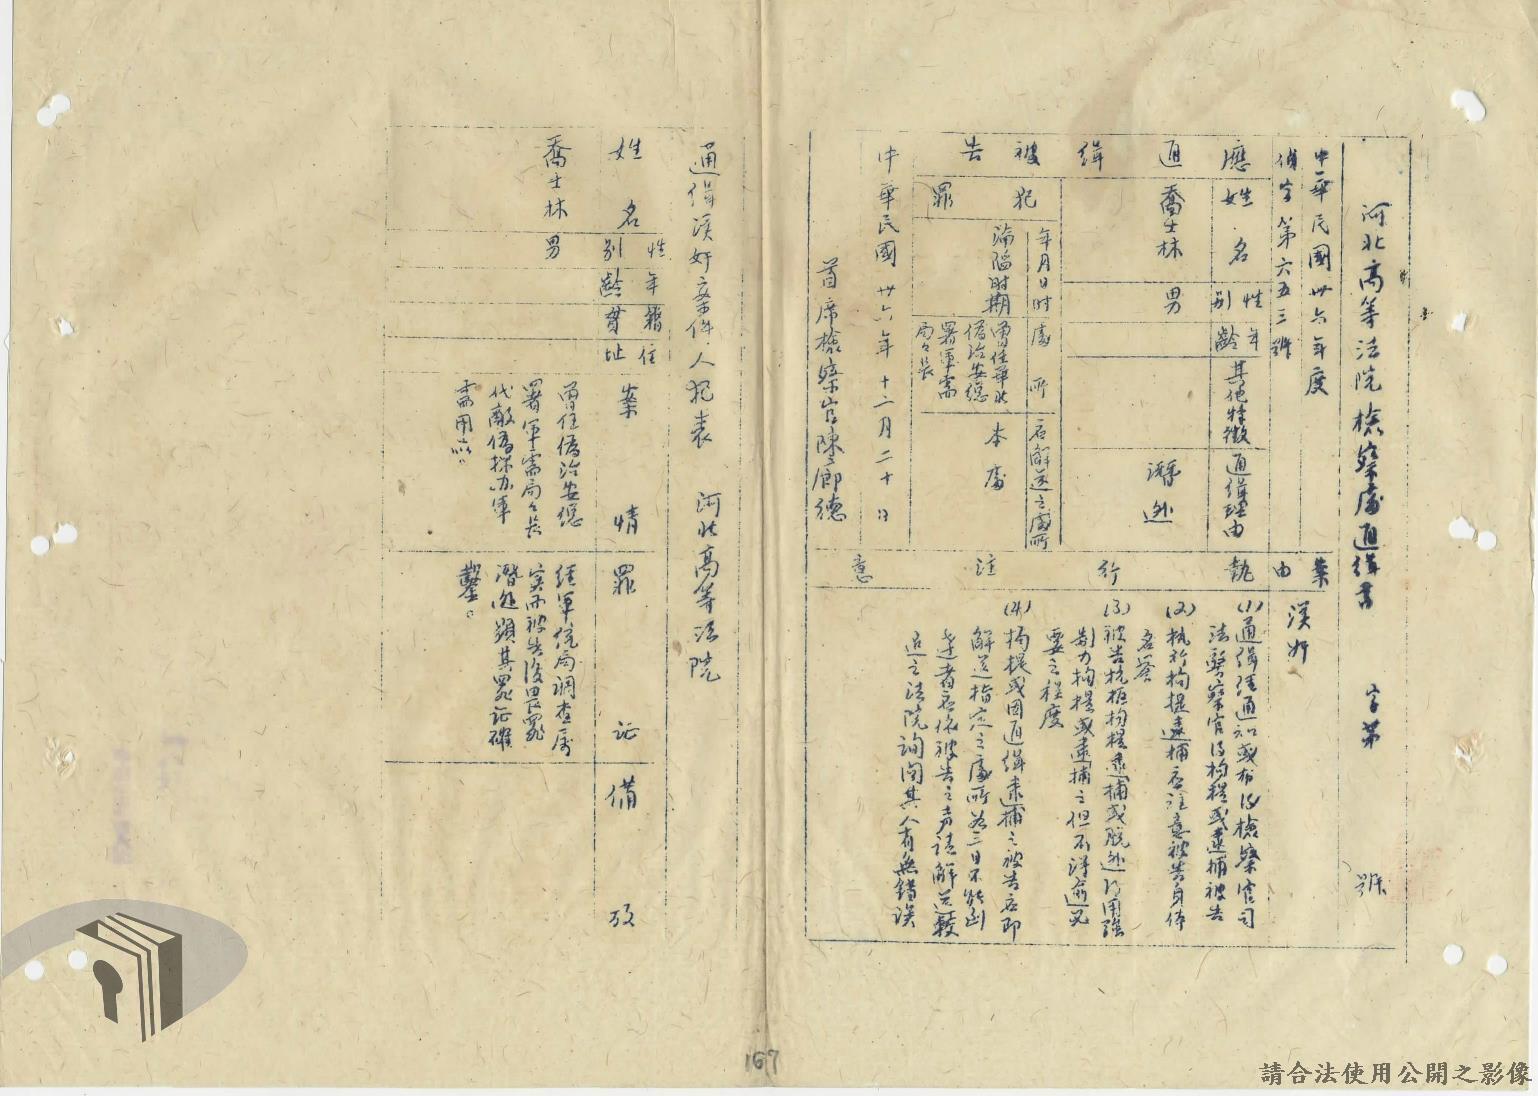 河北高等法院檢察處通緝書　字第　號
中華民國卅六年度
偵字第六五三號
案由
漢奸
應通緝被告
姓名
性別
年齡
其他特徵
通緝理由
喬士林
男
潛逃
犯罪
年月日时
處所
应解送之處所
淪陷时期
曾任華北
偽治安總
署軍需
局々長
本處
執行注意
(1)通緝經通知或布後檢察官司
法警察官得拘提或逮捕被告
(2)执行拘提逮捕应注意被告身体
名譽
(3)被告抗拒拘提逮捕或脫逃得用強
制力拘提或逮捕之但不得逾必
要之程度
(4)拘提或因通緝逮捕之被告应即
解送指定之處所如三日不能到
達者应依被告之声请解送較
近之法院詢问其人有無錯误
中華民國卅六年十二月二十日
首席檢察官陳彥德
通緝漢奸案件人犯表　河北高等法院
姓名
性別
年齡
籍貫
住址
案情
罪证
備攷
喬士林
男
曾任偽治安總
署軍需局々長
代敵偽採办軍
需用品。
经軍统局调查属
实而被告復畏罪
潛逃顯其罪证確
鑿。
167
請合法使用公開之影像